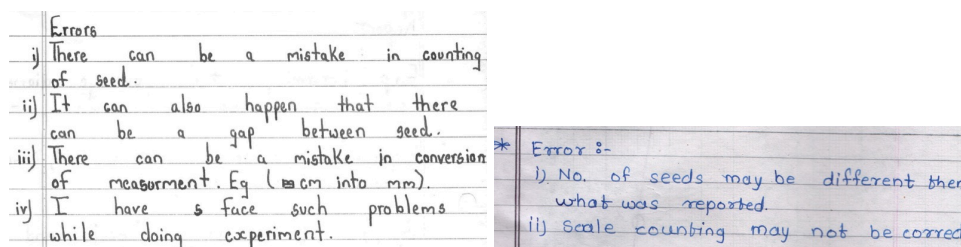 Errors
i) There can be a mistake in counting
of seed.
ii) It can also happen that there
can be a gap between seed.
iii) There can be a mistake in conversion
of measurment. Eg ( cm into mm).
iv) I have face such problems
while doing experiment.
* Error :-
i) No. of seeds may be different then
what was reported.
ii) Scale counting may not be correc